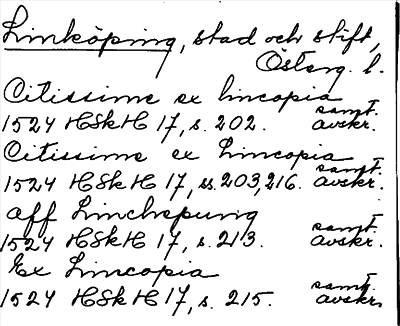 Linköping, stad och stift,
Österg. l.
Citissime ex lincopia
1524 HSkH 17, s. 202. samt. avskr.
Citissime ex Lincopia
1524 HSkH 17, ss. 203, 216. samt. avskr.
aff Linchepung
1524 HSkH 17, s. 213. samt. avskr.
Ex Lincopia
1524 HSkH 17, s. 215. samt. avskr.